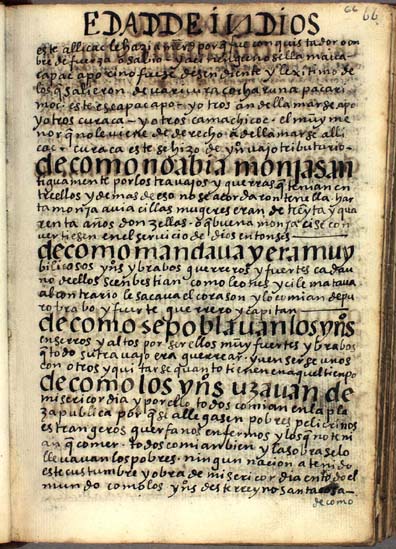 EDAD DE INDIOS
66 66
este allicac le hazia merced porque fue conquistador o onbre
de fuerza o sabio y aci tiene no se llama ica
capac apo cino fuese desendiente y lexitimo de
los que salieron de uari uira cocha runa pacari
moc este es capac apo y otros an de llamarse apo
y otros curaca y otros camachicoc el muy me
nor que no le uiene de derecho a de llamarse alli
cac curaca este se hizo de yndio tributario
de como no abia monjas an
tiguamente por los trauajos y guerras que tenian en
tre ellos y demas de eso no se acordaron tenella hasta
monja auia cillas mugeres eran de treynta y qua
renta años donzellas o que buena monja ci se con
uertiesen en el seruicio de dios entonses
de como mandaua y era muy
bilicosos yns y brabos guerreros y fuertes cada u
no dellos se enbestian como leones y ci le mataua
al contrario le sacaua el corason y lo comian de pu
ro brabo y fuerte guerrero y capitan
de como se poblauan los yns
en serros y altos por ser ellos muy fuertes y brabos
que todo su trauajo era guerrear y uenserse unos
con otros y quitarse quanto tienen en aquel tienpo
de como los yns uzauan de
misericordia y por ello todos comian en la pla
za publica porque se allegasen pobres pelicrinos
estrangeros guerfanos enfermos y los que no teni
an que comer todos comian bien y la sobra se lo
lleuauan los pobres ningun nacion a tenido
este custumbre y obra de misericordia en todo el
mundo como los yns deste rreyno santa cosa
de como